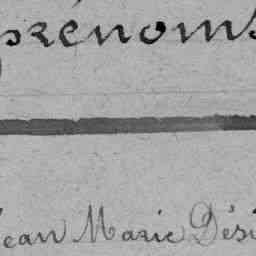 prénoms
Jean Marie Dési